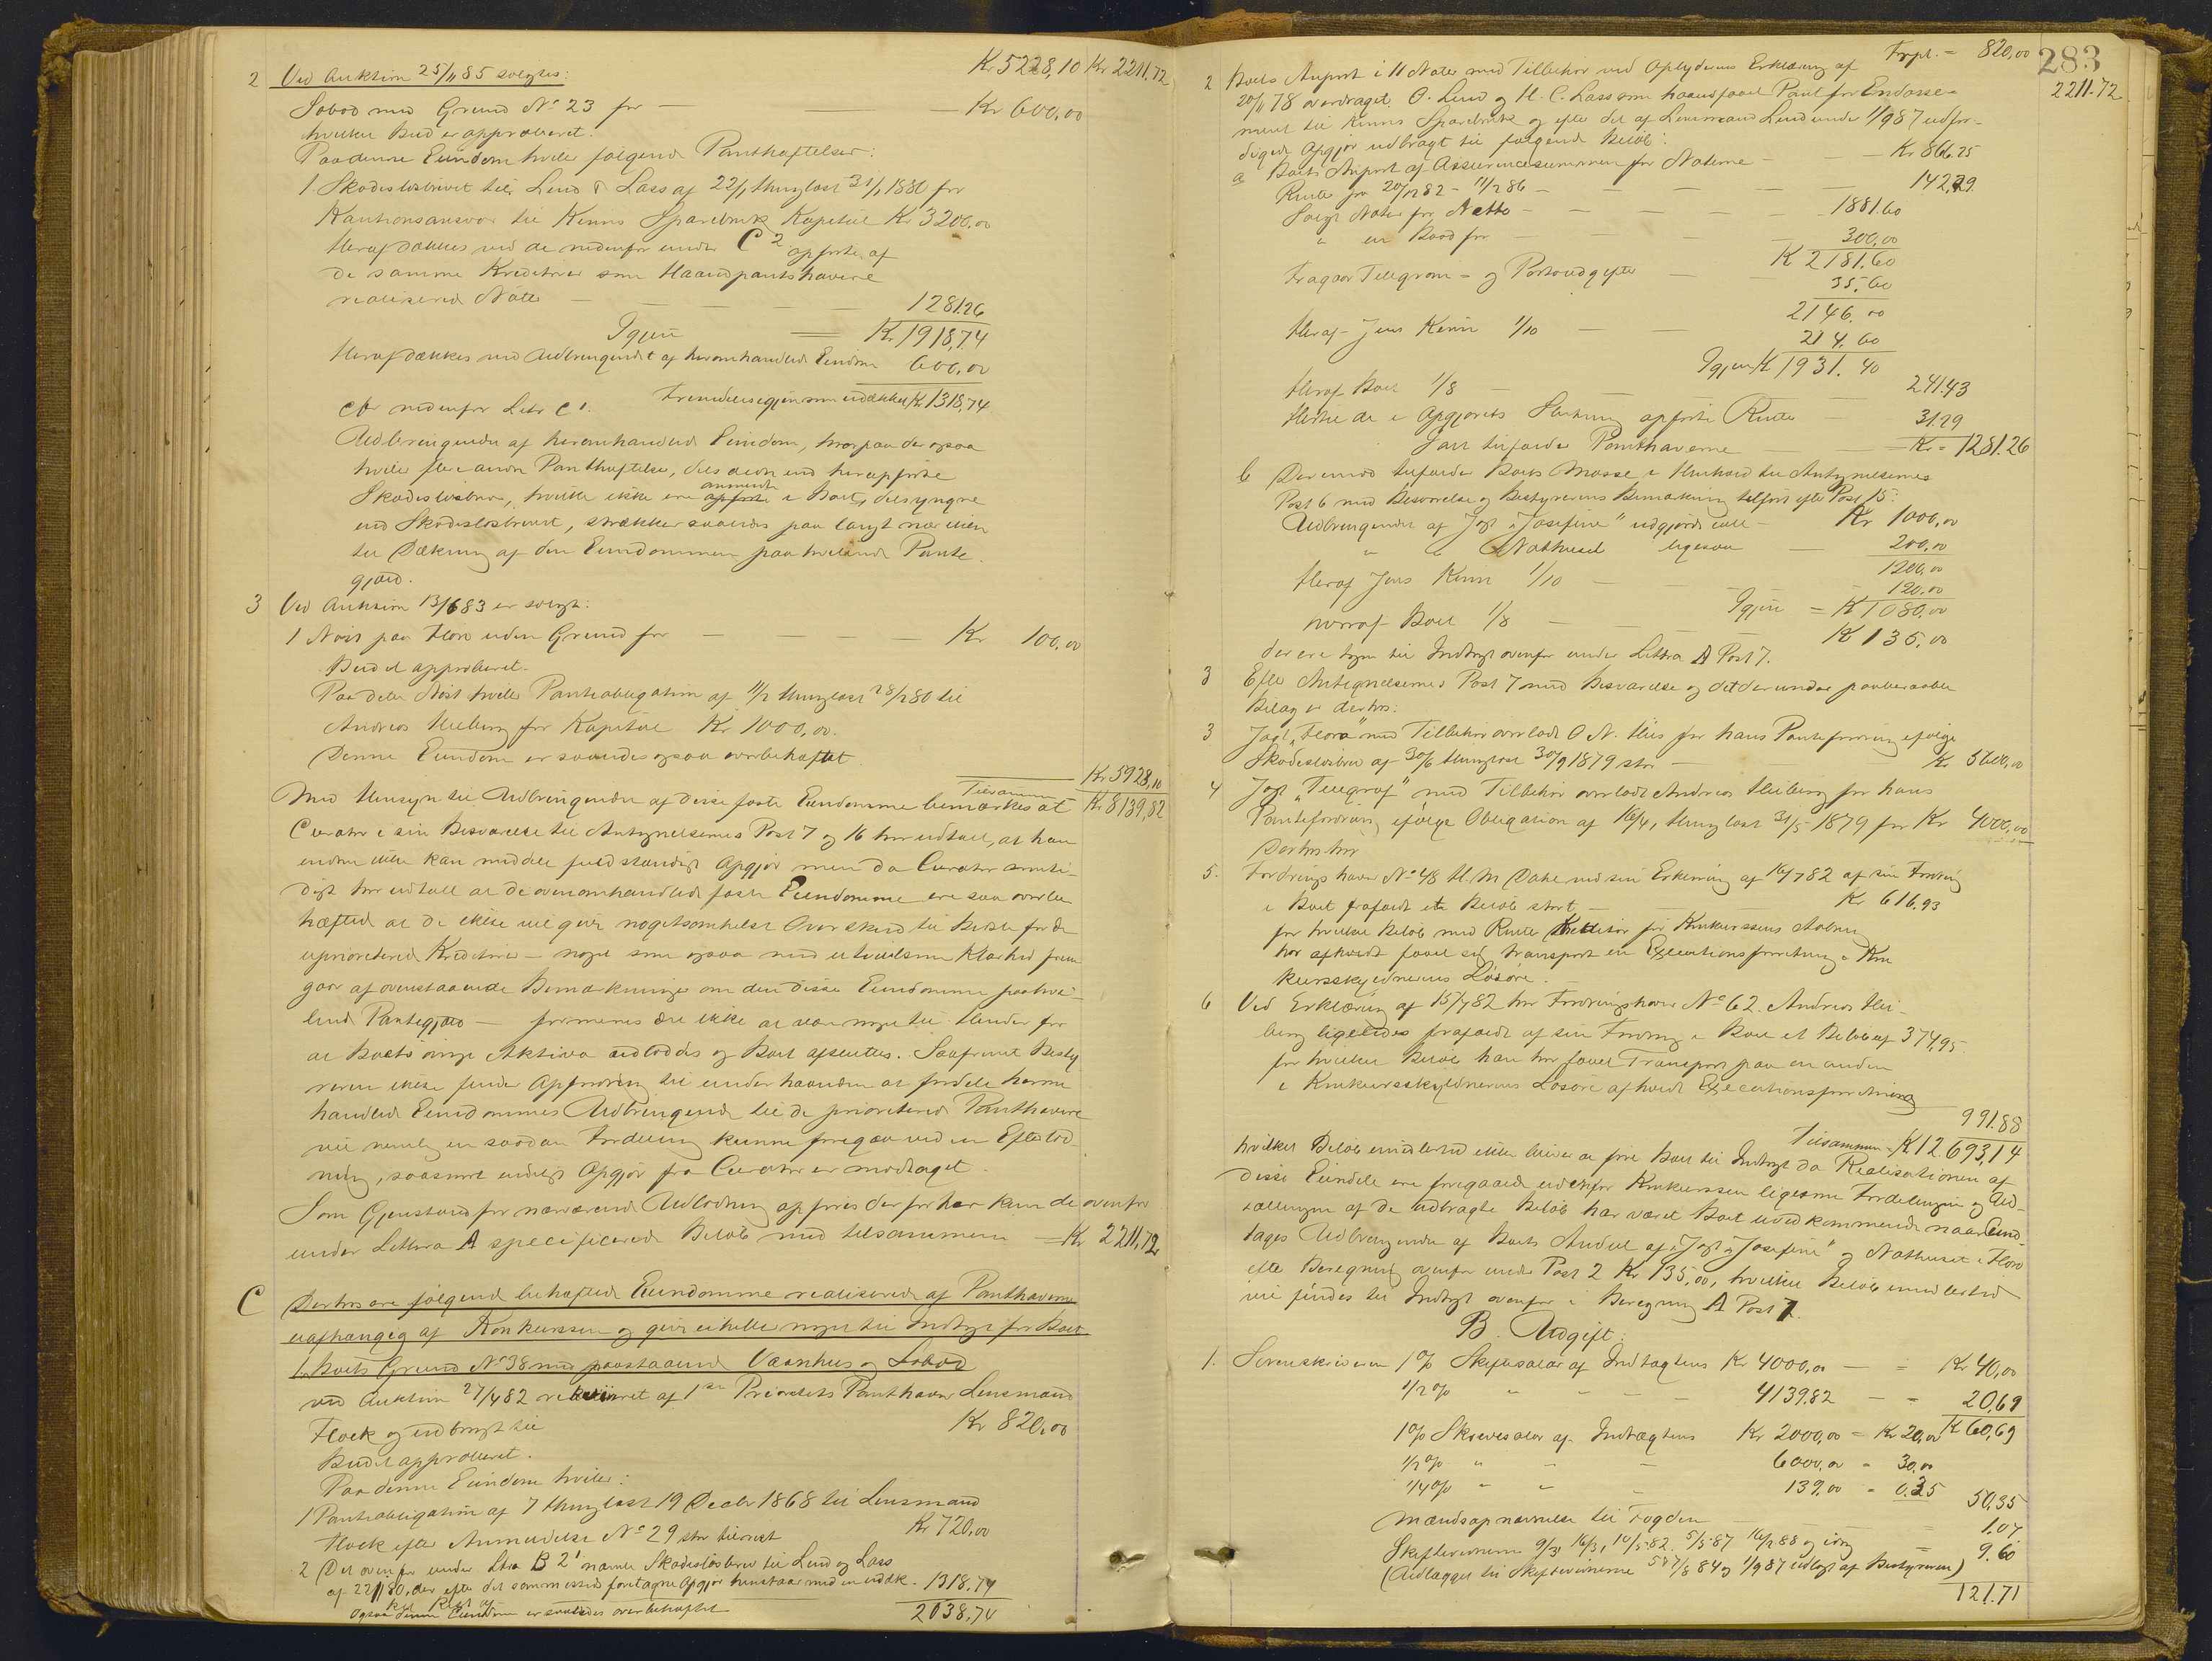 Kr 5228,10 Kr 2211,72
2 Ved Auktion 25/11 85 solgtes:
Søbod med Grund No 23 for — Kr 600,00
hvilket Bud er approberet.
Paa denne Eiendom hviler følgende Panthæftelser:
1. Skadesløsbrevet til Lund & Lass af 22/1 thinglæst 31/1 1880 for
Kautionsansvar til Kinns Sparebank Kapital Kr 3200,00
Heraf dækkes ved de nedenfor under C 2 opførte, af
de samme Kreditorer som Haandpantshavere
realiserede Nøter — 1281.26
Igjen — Kr 1918,74
Heraf dækkes med Udbringendet af heromhandlede Eiendom 600,00
Fremdeles igjen som udækket Kr 1318,74
cfr nedenfor Litr C 1.
Udbringendet af heromhandlede Eiendom, hvorpaa der ogsaa
hviler flere andre Panthæftelser, dels ældre end heropførte
Skadesløsbrev, hvilke ikke ere anmeldte i Boet, dels yngre
end Skadesløsbrevet, strækker saaledes paa langt nær ikke
til Dækning af den Eiendommen paahvilende Pante-
gjæld.
3 Ved Auktion 13/6 83 er solgt:
1 Nøst paa Florø uden Grund for — Kr 100,00
Budet approberet.
Paa dette Nøst hviler Panteobligation af 11/2 thinglæst 28/2 80 til
Andreas Heiberg for Kapital Kr 1000,00.
Denne Eiendom er saaledes ogsaa overbehæftet
Kr 5928,10
Tilsammen Kr 8139,82
Med Hensyn til Udbringendet af disse faste Eiendomme bemærkes at
Curator i sin Besvarelse til Antegnelsernes Post 7 og 16 har udtalt, at han
endnu ikke kan meddele fuldstændigt Opgjør men da Curator samti-
digt har udtalt at de ovenomhandlede faste Eiendomme ere saa overbe-
hæftede at de ikke vil give nogetsomhelst Overskud til Bedste for de
uprioriterede Kreditorer — noget som ogsaa med utvivlsom Klarhed frem
gaar af ovenstaaende Bemærkninger om den disse Eiendomme paahvi-
lende Pantegjæld — formenes der ikke at være noget til Hinder for
at Boets øvrige Aktiva udloddes og Boet afsluttes. Saafremt Besty
reren ikke finder Opfordring til underhaanden at fordele herom
handlede Eiendommes Udbringende til de prioriterede Panthavere
vil nemlig en saadan Fordeling kunne foregaa ved en Efterlod-
ning, saasnart endeligt Opgjør fra Curator er modtaget.
Som Gjenstand for nærværende Udlodning opføres derfor her kun de ovenfor
under Littra A specificerede Beløb med tilsammen — Kr 2211,72
C Derhos ere følgende behæftede Eiendomme realiserede af Panthaverne
uafhængig af Konkurssen og giver ei heller noget til Indtægt for Boet
1. Boets Grund No 38 med paastaaende Vaanhus og Søbod
ved Auktion 27/4 82 rekvireret af 1ste Prioritets Panthaver Lensmand
Flock og udbragt til Kr 820,00
Budet approberet.
Paa denne Eiendom hviler:
1 Panteobligation af 7 thinglæst 19 Decbr 1868 til Lensmand
Flock efter Anmeldelse No 29 stor tilrest Kr 720,00
2 Det ovenfor under Litra B 2 1 nævnte Skadesløsbrev til Lund og Lass
af 22/1 80, der efter det sammesteds foretagne Opgjør henstaar med en udæk- 1318,74
ket Rest af
Ogsaa denne Eiendom er saaledes overbehæftet 2038,74
283
Trpt. = 820,00
2211.72
2 Boets Anpart i 11 Nøter med Tilbehør ved Opbyderens Erklæring af
20/11 78 overdraget O. Lund og H. C. Lass som haandfaaet Pant for Endosse-
ment til Kinns Sparebank og efter det af Lensmand Lund under 1/9 87 udfær-
digede Opgjør udbragt til følgende Beløb:
a Boets Anpart af Assurancesummen for Nøterne — Kr 866.25
Rente fra 20/12 82 - 11/2 86 — 142,29.
Solgt Nøter for Netto — 1881.60
" en Baad for — 300,00
K 2181.60
Fragaar Telegram- og Portoudgifter — 35.60
2146.00
Heraf Jens Kinn 1/10 — 214.60
Igjen K 1931.40
Heraf Boet 1/8 — 241.43
Hertil de i Opgjørets Slutning opførte Renter — 31.29
Som tilfalder Panthaverne — Kr = 1281.26
b Derimod tilfalder Boets Masse i Henhold til Antegnelsernes
Post 6 med Besvarelse og Bestyrerens Bemærkning tilført efter Post 15:
Udbringendet af Jagt "Josefine" udgjorde ialt — Kr 1000,00
" " Nothuset ligesaa — 200,00
1200,00
Heraf Jens Kinn 1/10 — 120,00
Igjen = K 1080,00
hvoraf Boet 1/8 — K 135,00
der ere tagne til Indtægt ovenfor under Littra A Post 7.
3 Efter Antegnelsernes Post 7 med Besvarelse og det derunder paaberaabte
Bilag er derhos:
3 Jagt "Flora" med Tilbehør overladt O. N. Hies for hans Pantefordring ifølge
Skadesløsbrev af 30/6 thinglæst 30/9 1879 stor — Kr 5600,00
4 Jagt "Telegraf" med Tilbehør overladt Andreas Heiberg for hans
Pantefordring ifølge Obligation af 16/4, thinglæst 31/5 1879 for Kr 4000,00
Derhos har
5. Fordringshaver No 48 H. M. Dahe ved sin Erklæring af 16/7 82 af sin Fordring
i Boet frafaldt et Beløb stort — Kr 616.93
for hvilket Beløb med Renter Kreditor før Konkurssens Aabning
har afholdt faaet sig transport en Executionsforretning i Kon
kursskyldnerens Løsøre.
6 Ved Erklæring af 15/7 82 har Fordringshaver No 62. Andreas Hei-
berg ligeledes frafaldt af sin Fordring i Boet et Beløb af 374,95.
for hvilket Beløb han har faaet Transport paa en anden
i Konkursskyldnerens Løsøre afholdt Executionsforretning
991.88
Tilsammen K 12.693,14
hvilket Beløb imidlertid ikke bliver at føre Boet til Indtægt da Realisationen af
disse Eiendele ere foregaaede udenfor Konkurssen ligesom Fordelingen og Ud-
tællingen af de udbragte Beløb har været Boet uvedkommende naar und-
tages Udbringendet af Boets Andel af "Jagt "Josefine" og Nothuset i Florø
efter Beregning ovenfor under Post 2 Kr 135,00, hvilket Beløb imidlertid
vil findes til Indtægt ovenfor i Beregning A Post 7.
B. Udgift:
1. Sorenskriveren 1 % Skiftesalær af Indtægtens Kr 4000,00 — = Kr 40,00
1/2 % " - - - 4139.82 — = 20,69
K 60,69
1 % Skrivesalær af Indtægtens Kr 2000,00 = Kr 20,00
1/2 % " - - 6000,00 = 30,00
1/4 % " - - 139,00 = 0.35 50,35
Mændsopnævnelse til Fogden — 1.07
Skiftevidnerne 9/3, 16/3, 10/5 82. 5/5 87 16/2 88 og iøvrigt = 9.60
(Udlægget til Skiftevidnerne 7/5 84 og 1/9 87 udlagt af Bestyreren)
121.71